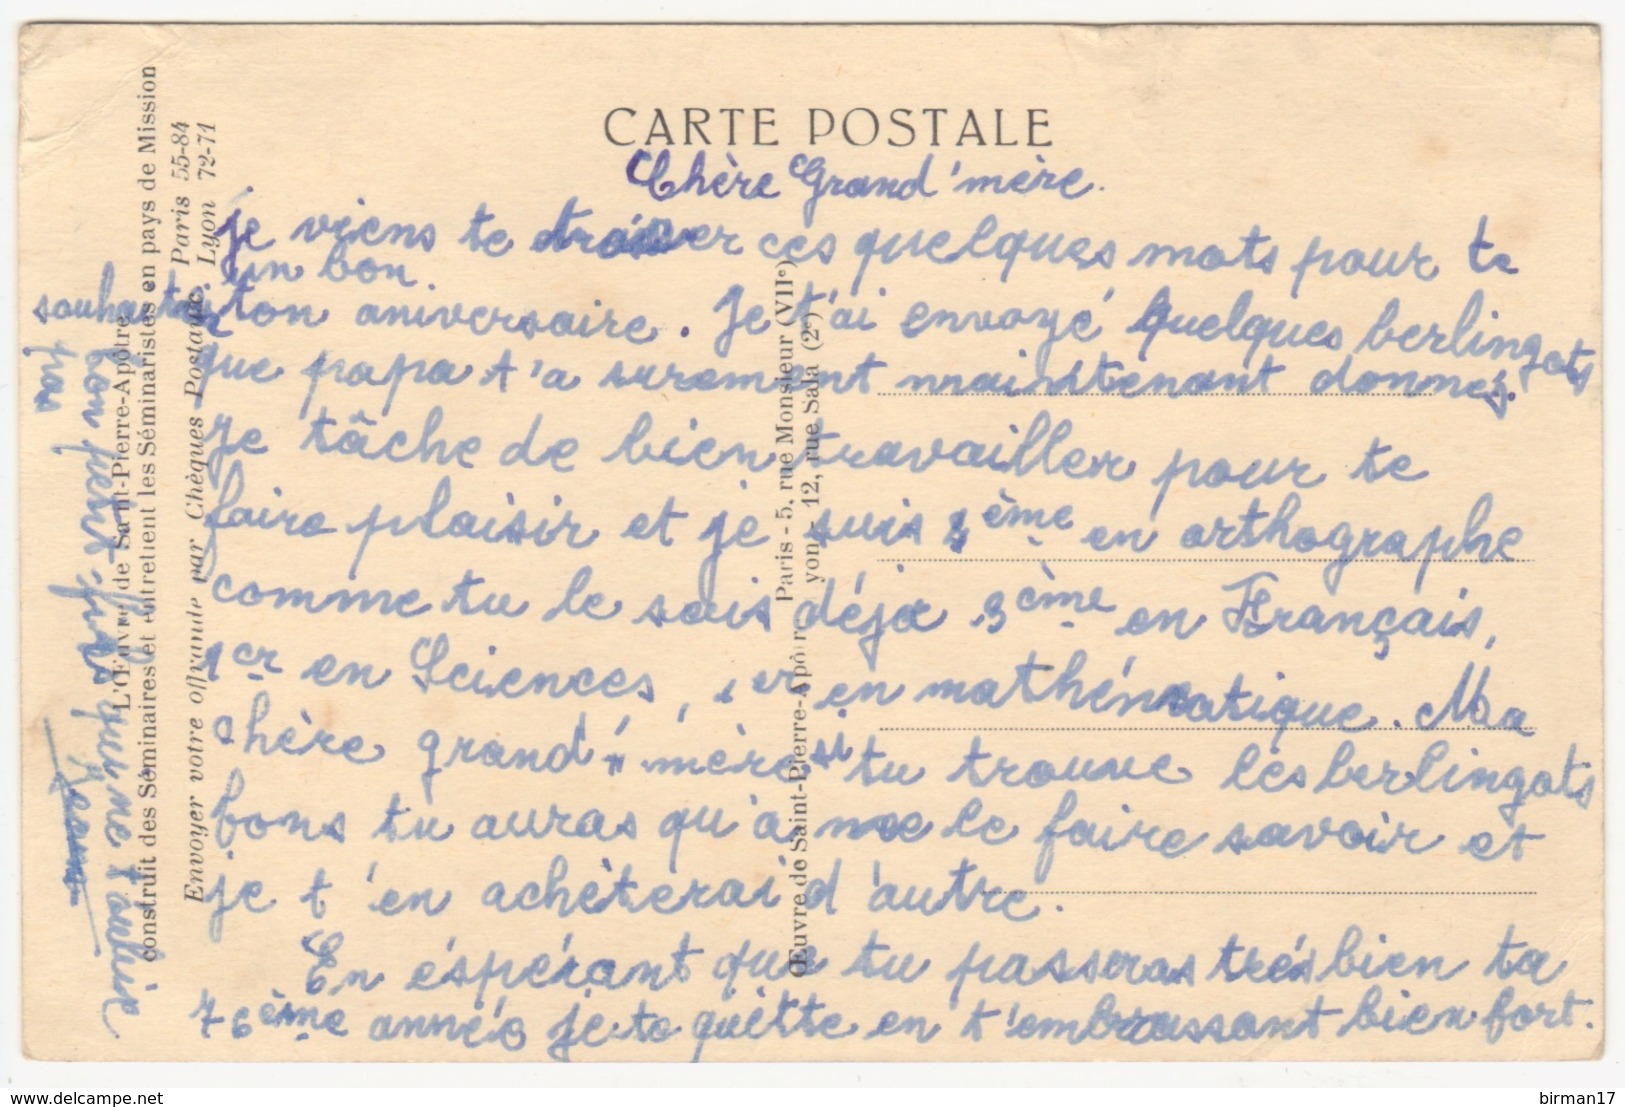 CARTE POSTALE
Chère Grand'mère.
je viens te tracer ces quelques mots pour te
souhaiter un bon
ton aniversaire. Je t'ai envoyé quelques berlingots
que papa t'a surement maintenant donnés.
Je tâche de bien travailler pour te
faire plaisir et je suis 2ème en orthographe
comme tu le sais déjà 3ème en Français,
1er en Sciences, 1er en mathématique. Ma
chère grand'mère si tu trouve les berlingots
bons tu auras qu'à me le faire savoir et
je t'en achèterai d'autre.
En éspérant que tu passeras très bien ta
76ème année je te quitte en t'embrassant bien fort.
ton petit fils qui ne t'oublie
pas
L'Œuvre de Saint-Pierre-Apôtre
construit des Séminaires et entretient les Séminaristes en pays de Mission
Envoyer votre offrande par Chèques Postaux. Paris 55-84
Lyon 72-71
Œuvre de Saint-Pierre-Apôtre Paris - 5, rue Monsieur (VIIe)
Lyon - 12, rue Sala (2e)
delcampe.net
birman17